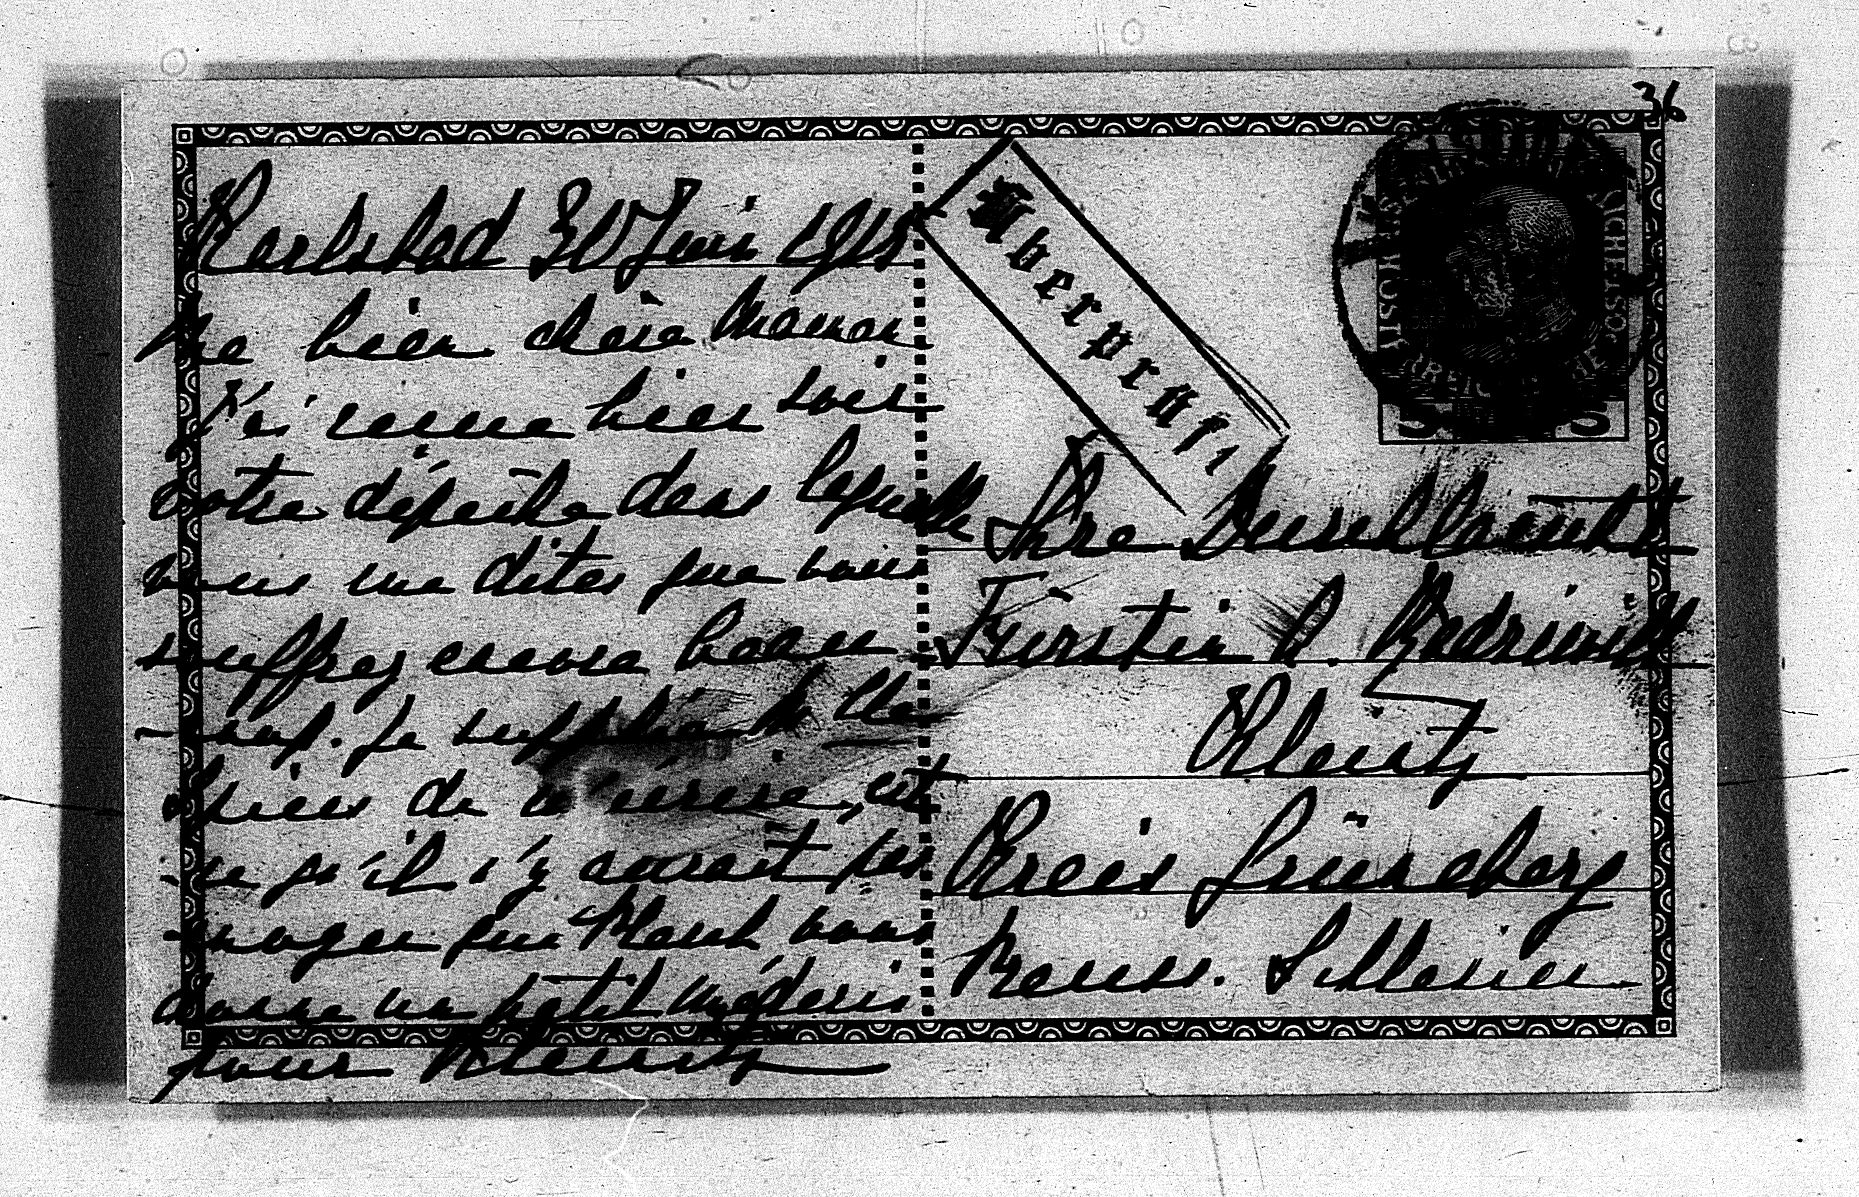 36
Karlsbad 30 Juin 1915
Ma bien chère Maman
J'ai reçue hier soir
votre dépêche dans laquelle
vous me dites que vous
souffrez encore beau
-coup. Je supplie la
de est
-ce qu'il n'y aurait pas
moyen que vous
donne un petit médecin
pour Kleinitz
Überprüft
Ihre Durchlaucht
Fürstin A. Radziwill
Kleinitz
Kreis Grüneberg
Preuss. Schlesien